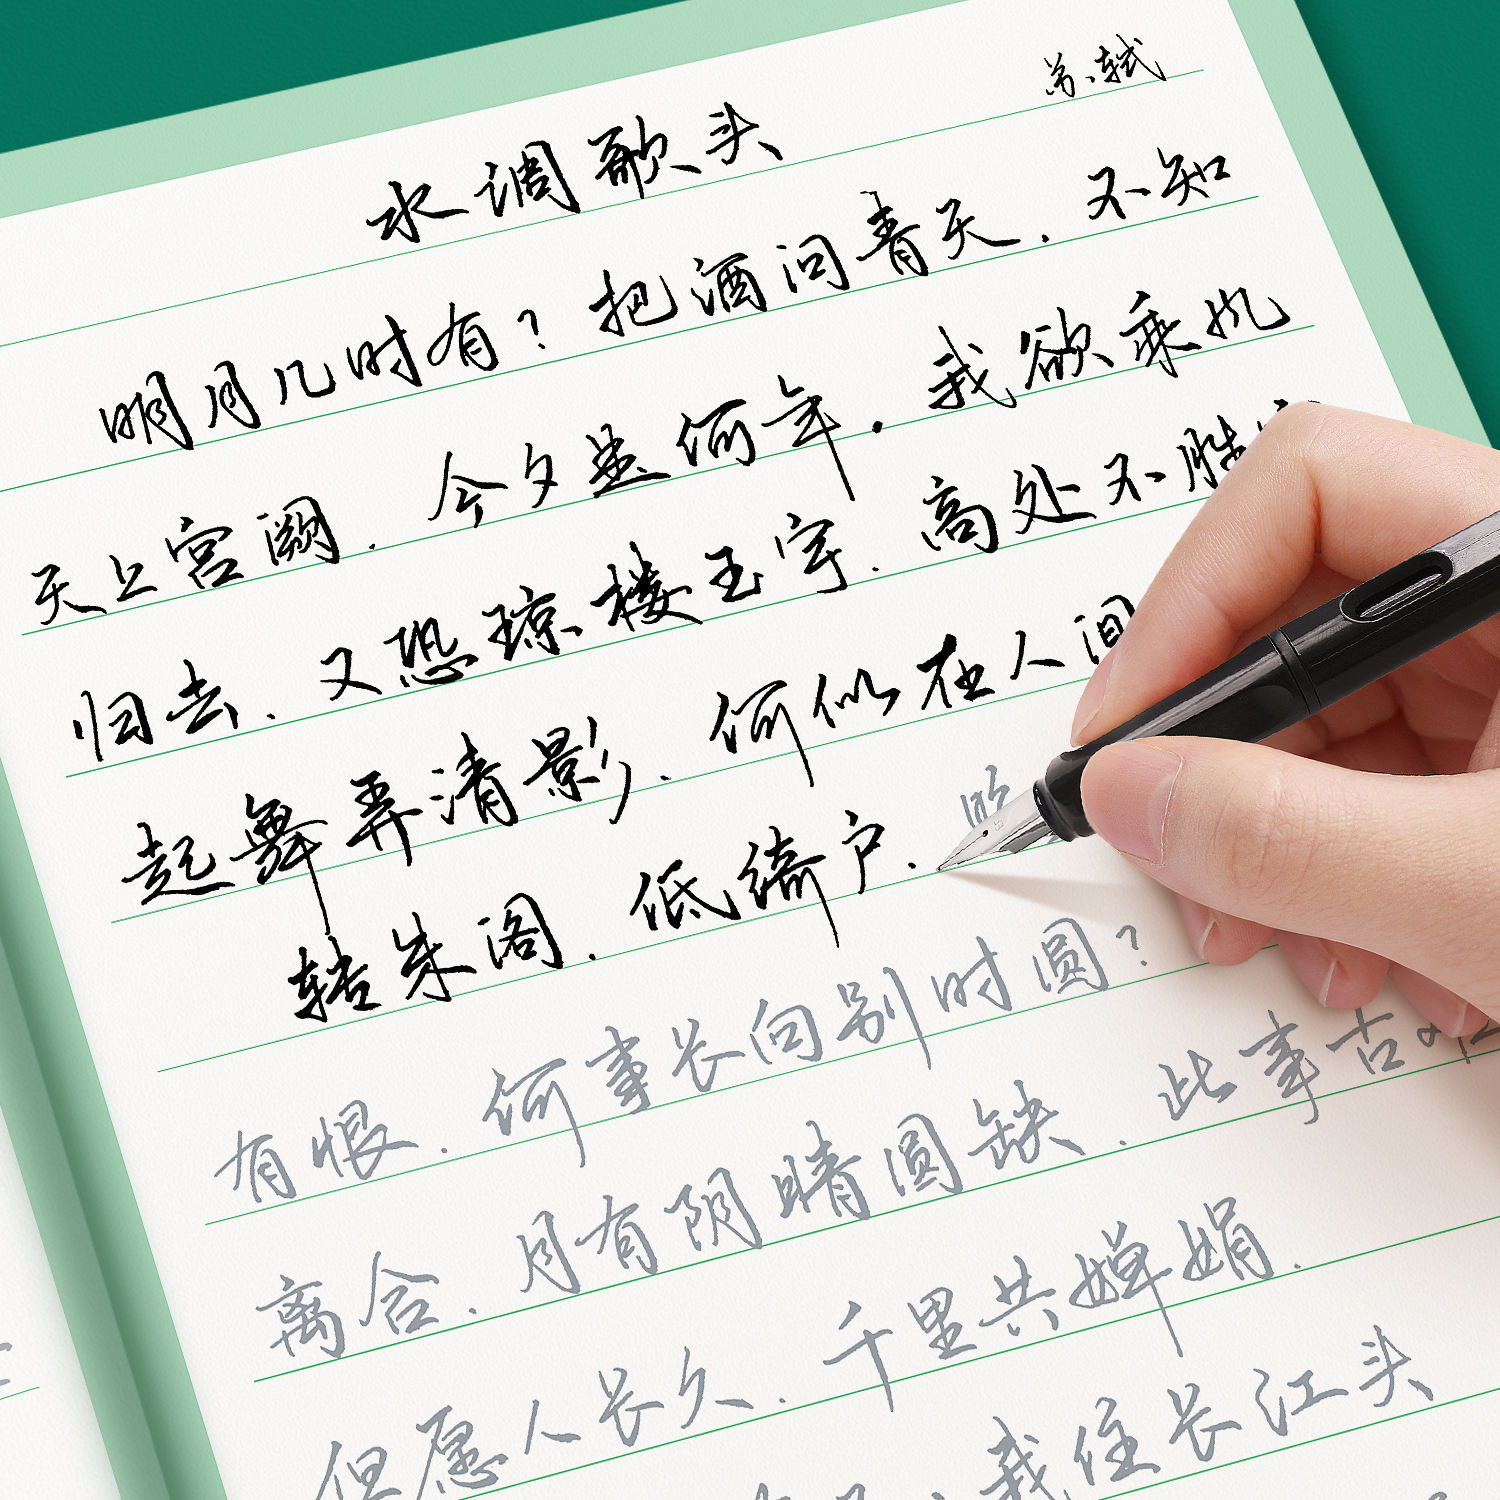 苏轼
水调歌头
明月几时有？把酒问青天．不知
天上宫阙．今夕是何年．我欲乘风
归去．又恐琼楼玉宇．高处不胜
起舞弄清影．何似在人间
转朱阁．低绮户．照
有恨．何事长向别时圆？
离合．月有阴晴圆缺．此事古
但愿人长久．千里共婵娟．
我住长江头